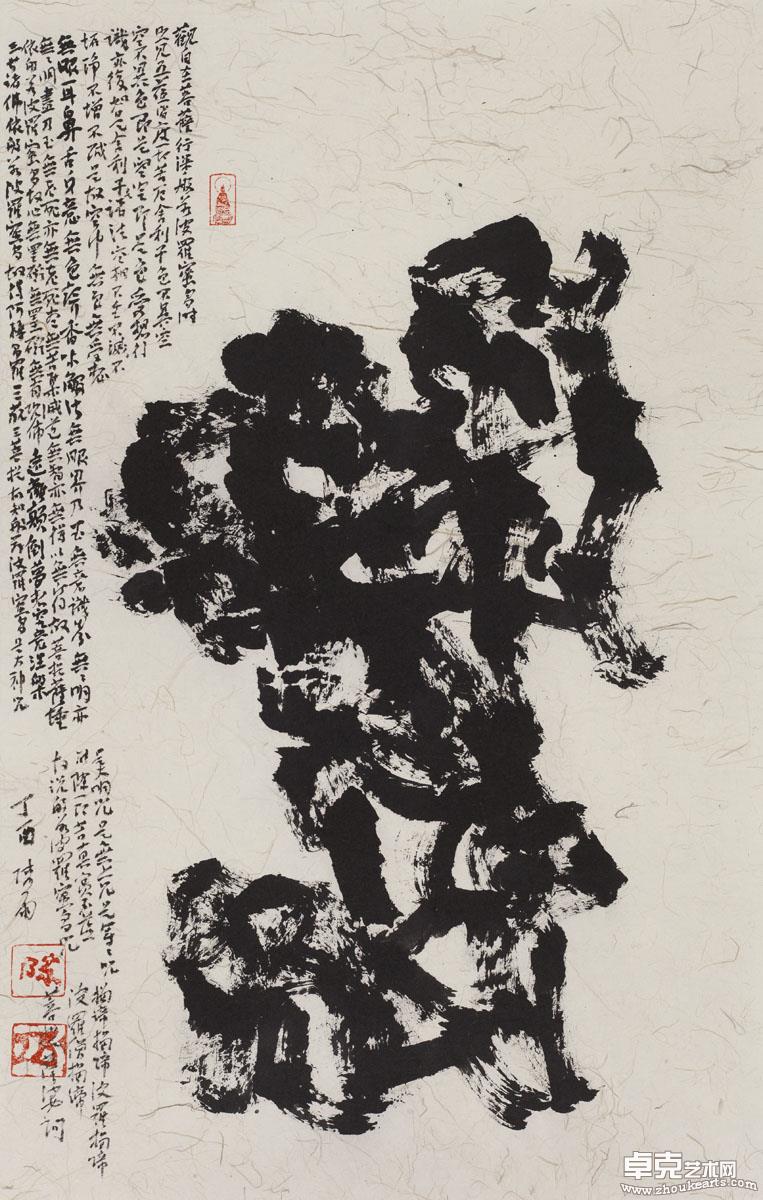 觀自在菩薩行深般若波羅蜜多時
照見五蘊皆度一切苦厄舍利子色不異空
空不異色即是空空即是色受想行
識亦復如是舍利子諸法空相不生不滅不
垢淨不增不減是故空中無色無受想
無眼耳鼻舌身意無色聲香味觸法無眼界乃至無意識界無無明亦
無無明盡乃至無老死亦無老死盡無苦集滅道無智亦無得以無所得故菩提薩埵
依般若波羅蜜多故心無罣礙無罣礙無有恐怖遠離顛倒夢想究竟涅槃
三世諸佛依般若波羅蜜多故得阿耨多羅三藐三菩提故知般若波羅蜜多是大神咒
是大明咒是無上咒是無等等咒
能除一切苦真實不虛
故說般若波羅蜜多咒
揭諦揭諦波羅揭諦
波羅僧揭諦
菩提薩婆訶
丁酉
陳
卓克艺术网
www.zhoukearts.com